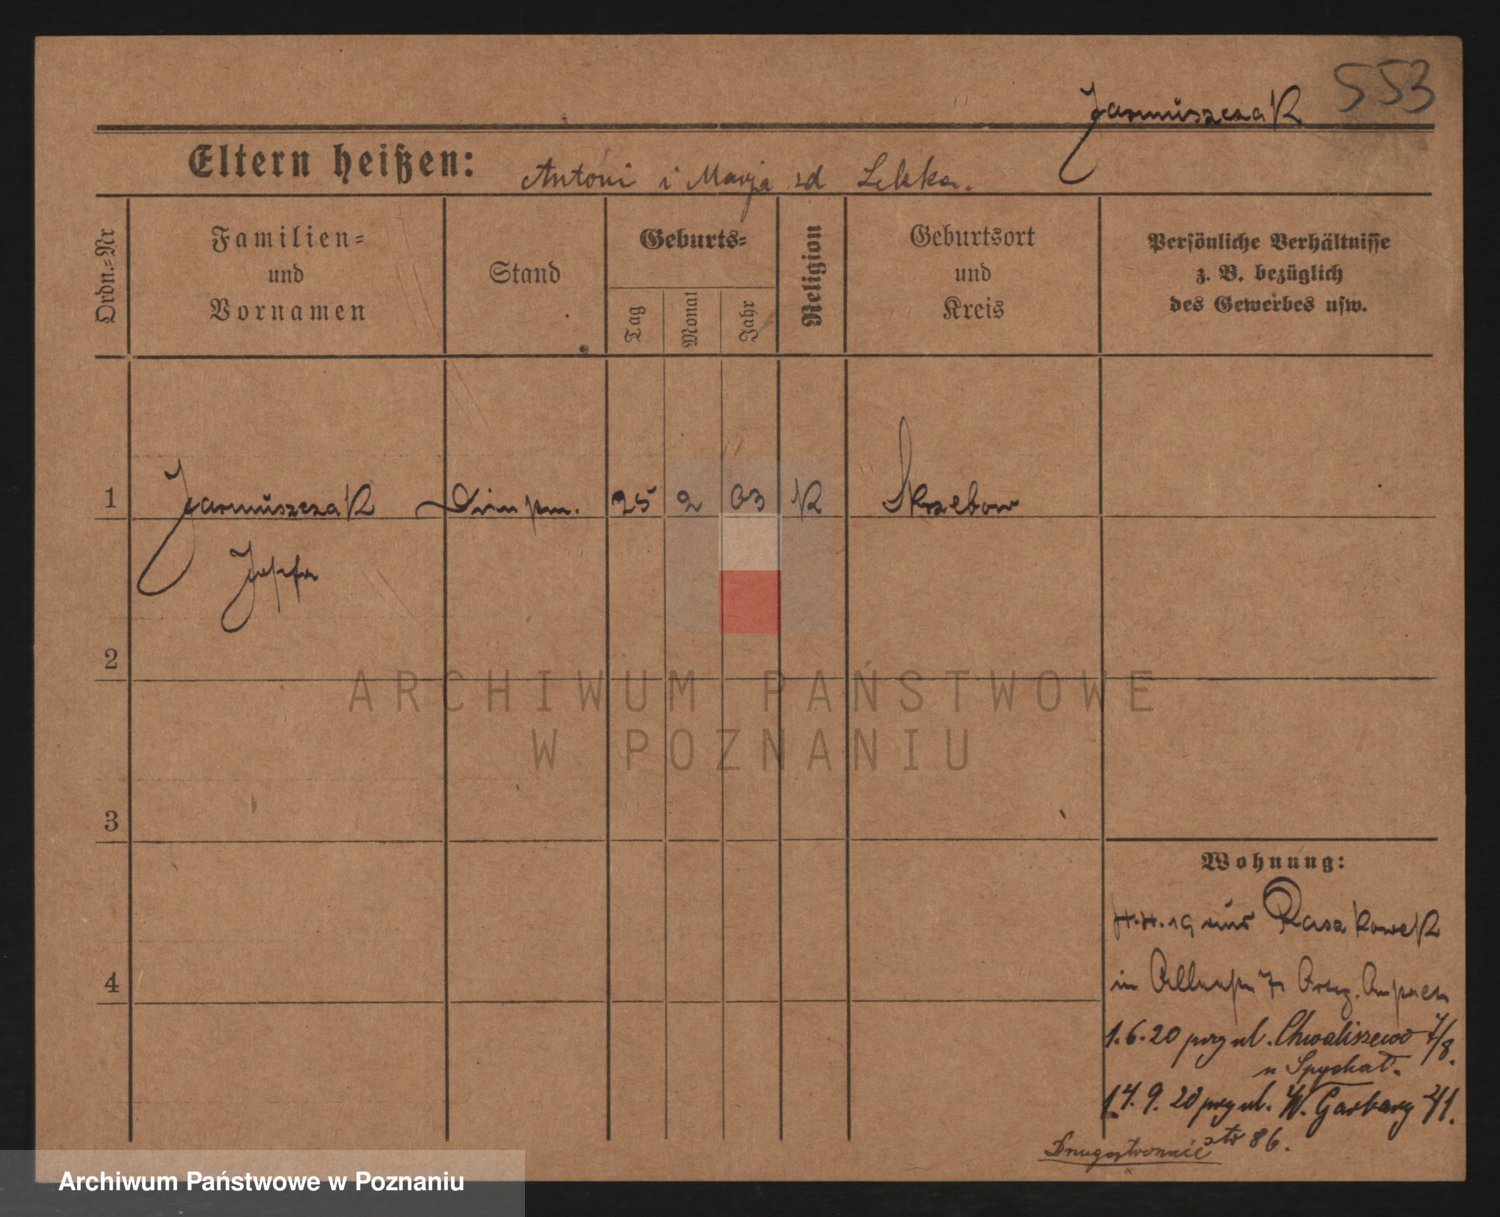 553
Jarmuszczak
Eltern heißen: Antoni i Marja zd Lekka.
Ordn.=Nr
Familien=
und
Vornamen
Stand
Geburts=
Tag
Monat
Jahr
Religion
Geburtsort
und
Kreis
Persönliche Verhältnisse
z. B. bezüglich
des Gewerbes usw.
1 Jarmuszczak 25 2 03 K Skrzebow
2
3
4
ARCHIWUM PAŃSTWOWE
W POZNANIU
Wohnung:
19 aus Raszkowek
in
1.6.20 przy ul. Chwaliszewo 7/8.
u Spychał.
14.9.20 przy ul. W. Garbary 41.
Drugostronnie str 86.
Archiwum Państwowe w Poznaniu